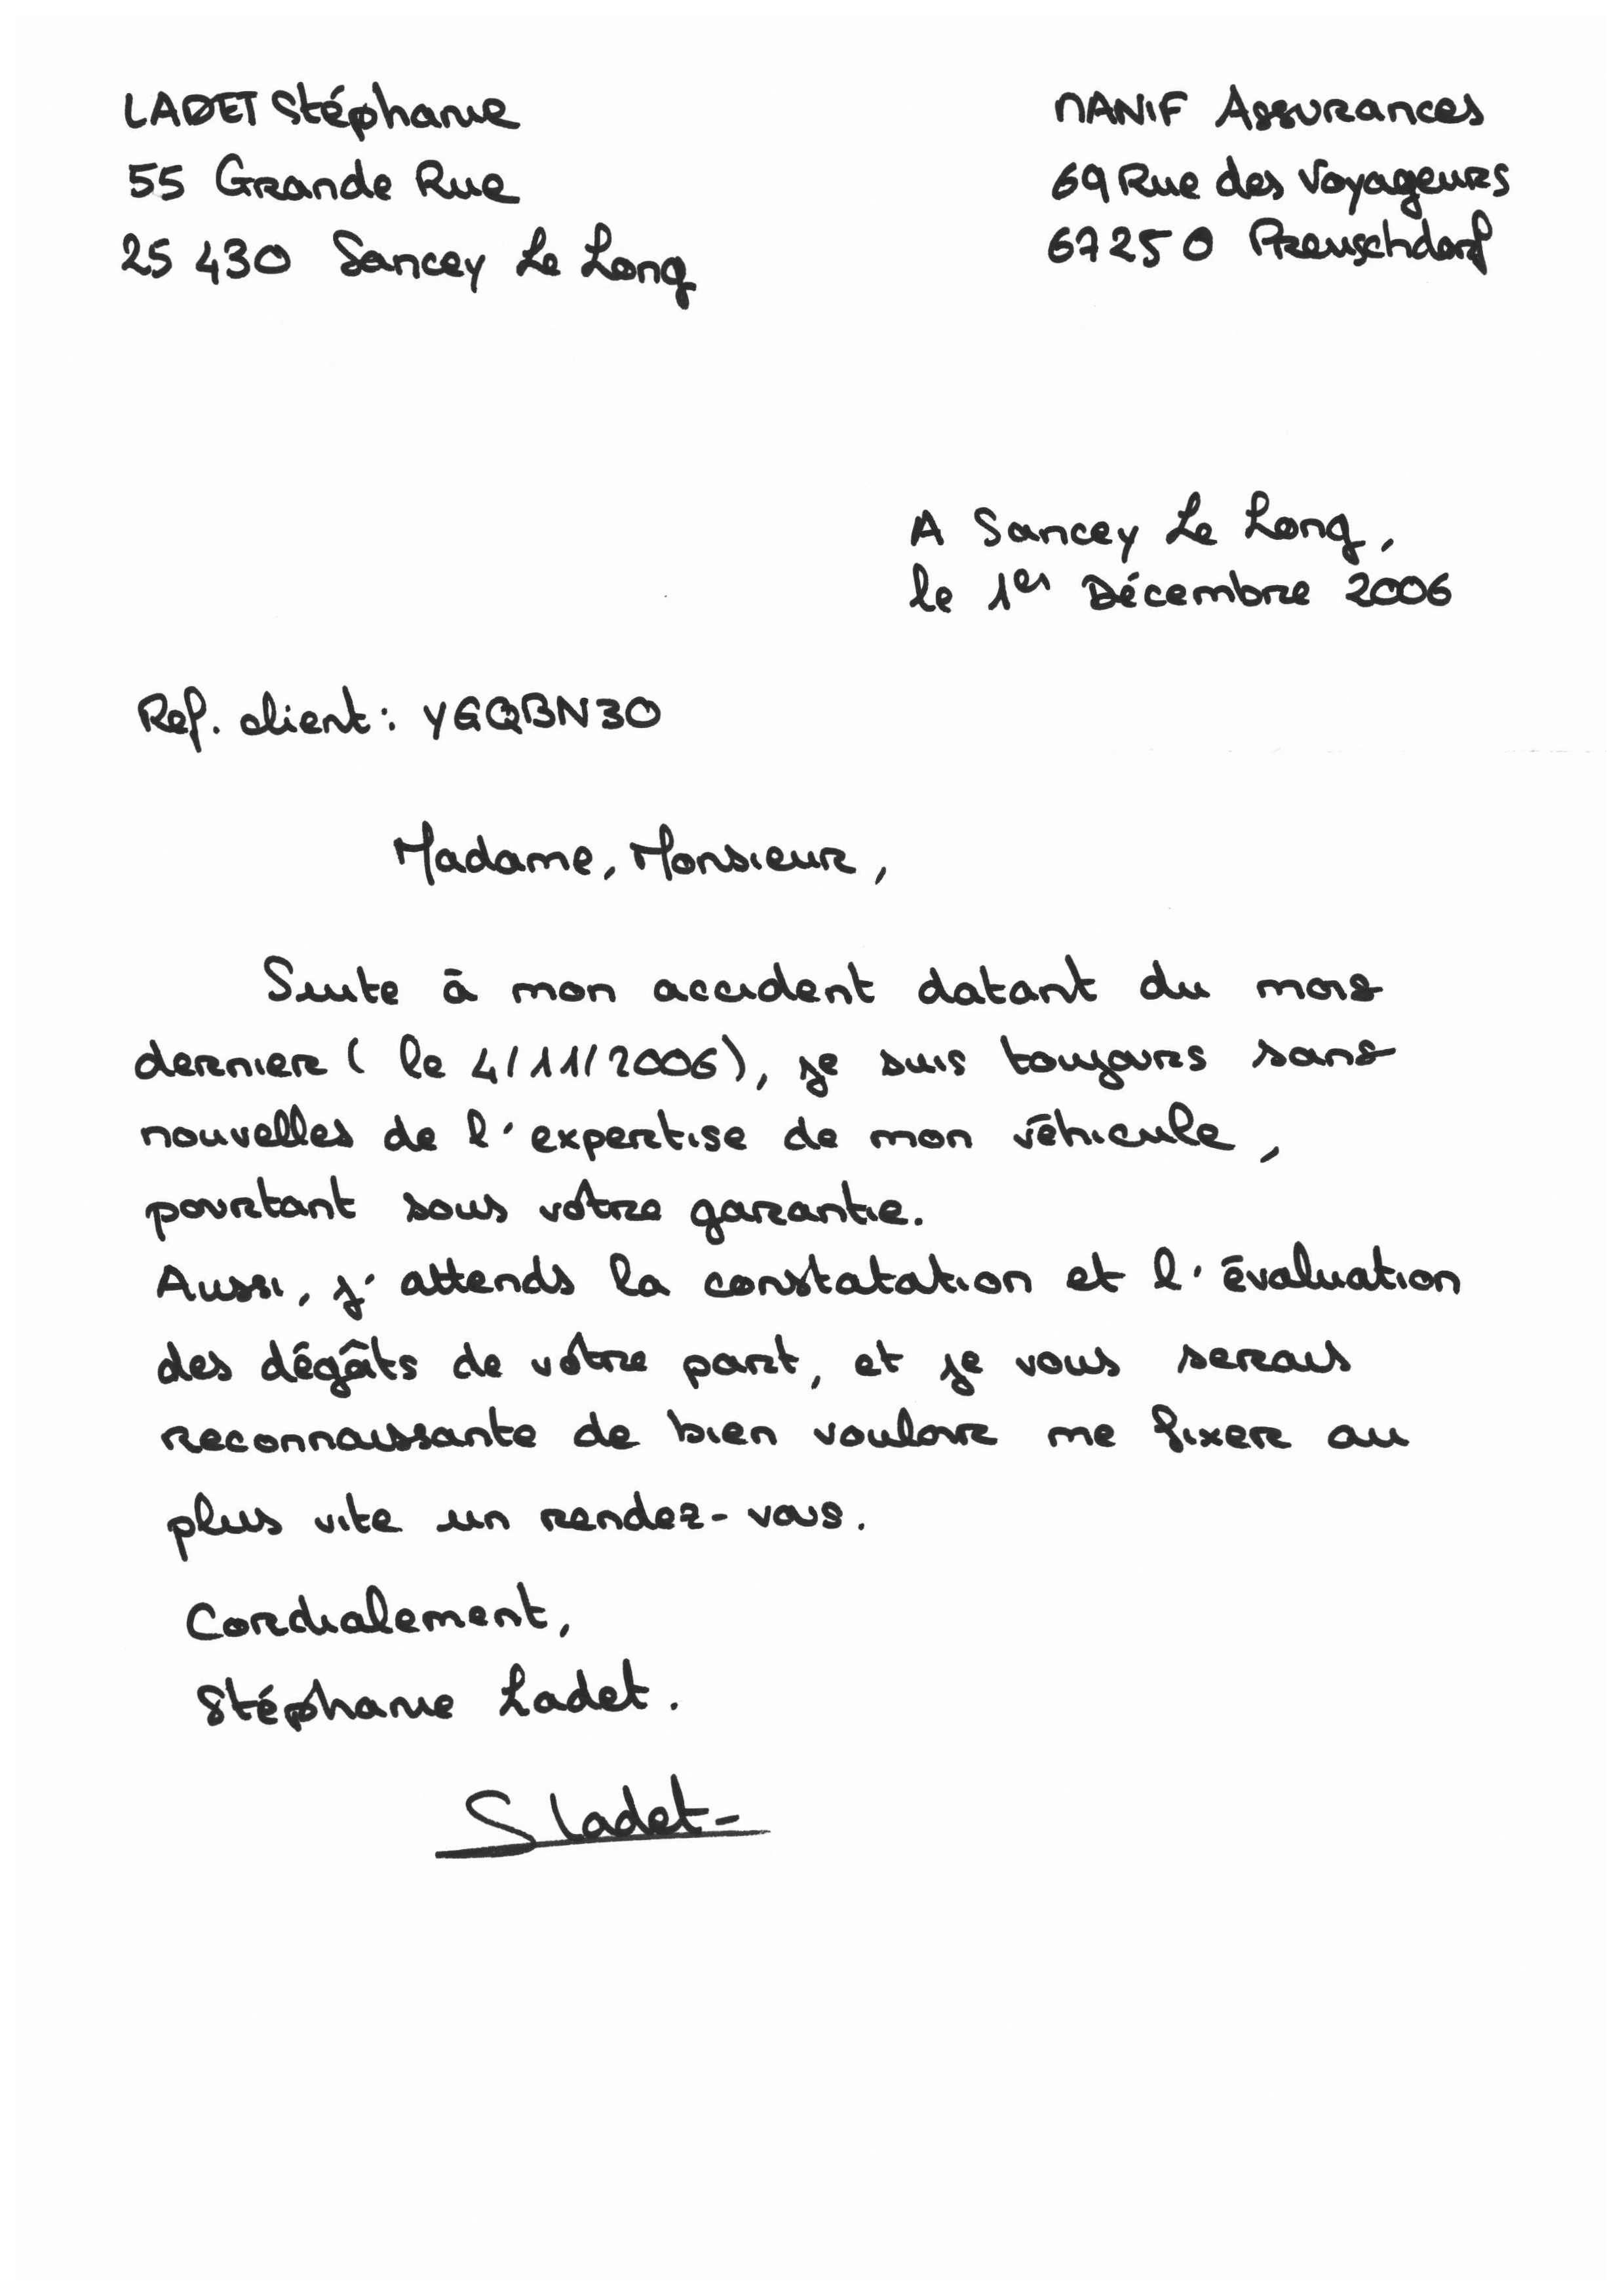 LADET Stéphanie
55 Grande Rue
25 430 Sancey Le Long
MANIF Assurances
69 Rue des Voyageurs
67250 Preuschdorf
A Sancey Le Long,
le 1er Décembre 2006
Ref. client : YGQBN30
Madame, Monsieur,
Suite à mon accident datant du mois
dernier ( le 4/11/2006), je suis toujours sans
nouvelles de l'expertise de mon véhicule,
pourtant sous vôtre garantie.
Aussi, j'attends la constatation et l'évaluation
des dégâts de vôtre part, et je vous serais
reconnaissante de bien vouloir me fixer au
plus vite un rendez-vous.
Cordialement,
Stéphanie Ladet.
S Ladet-